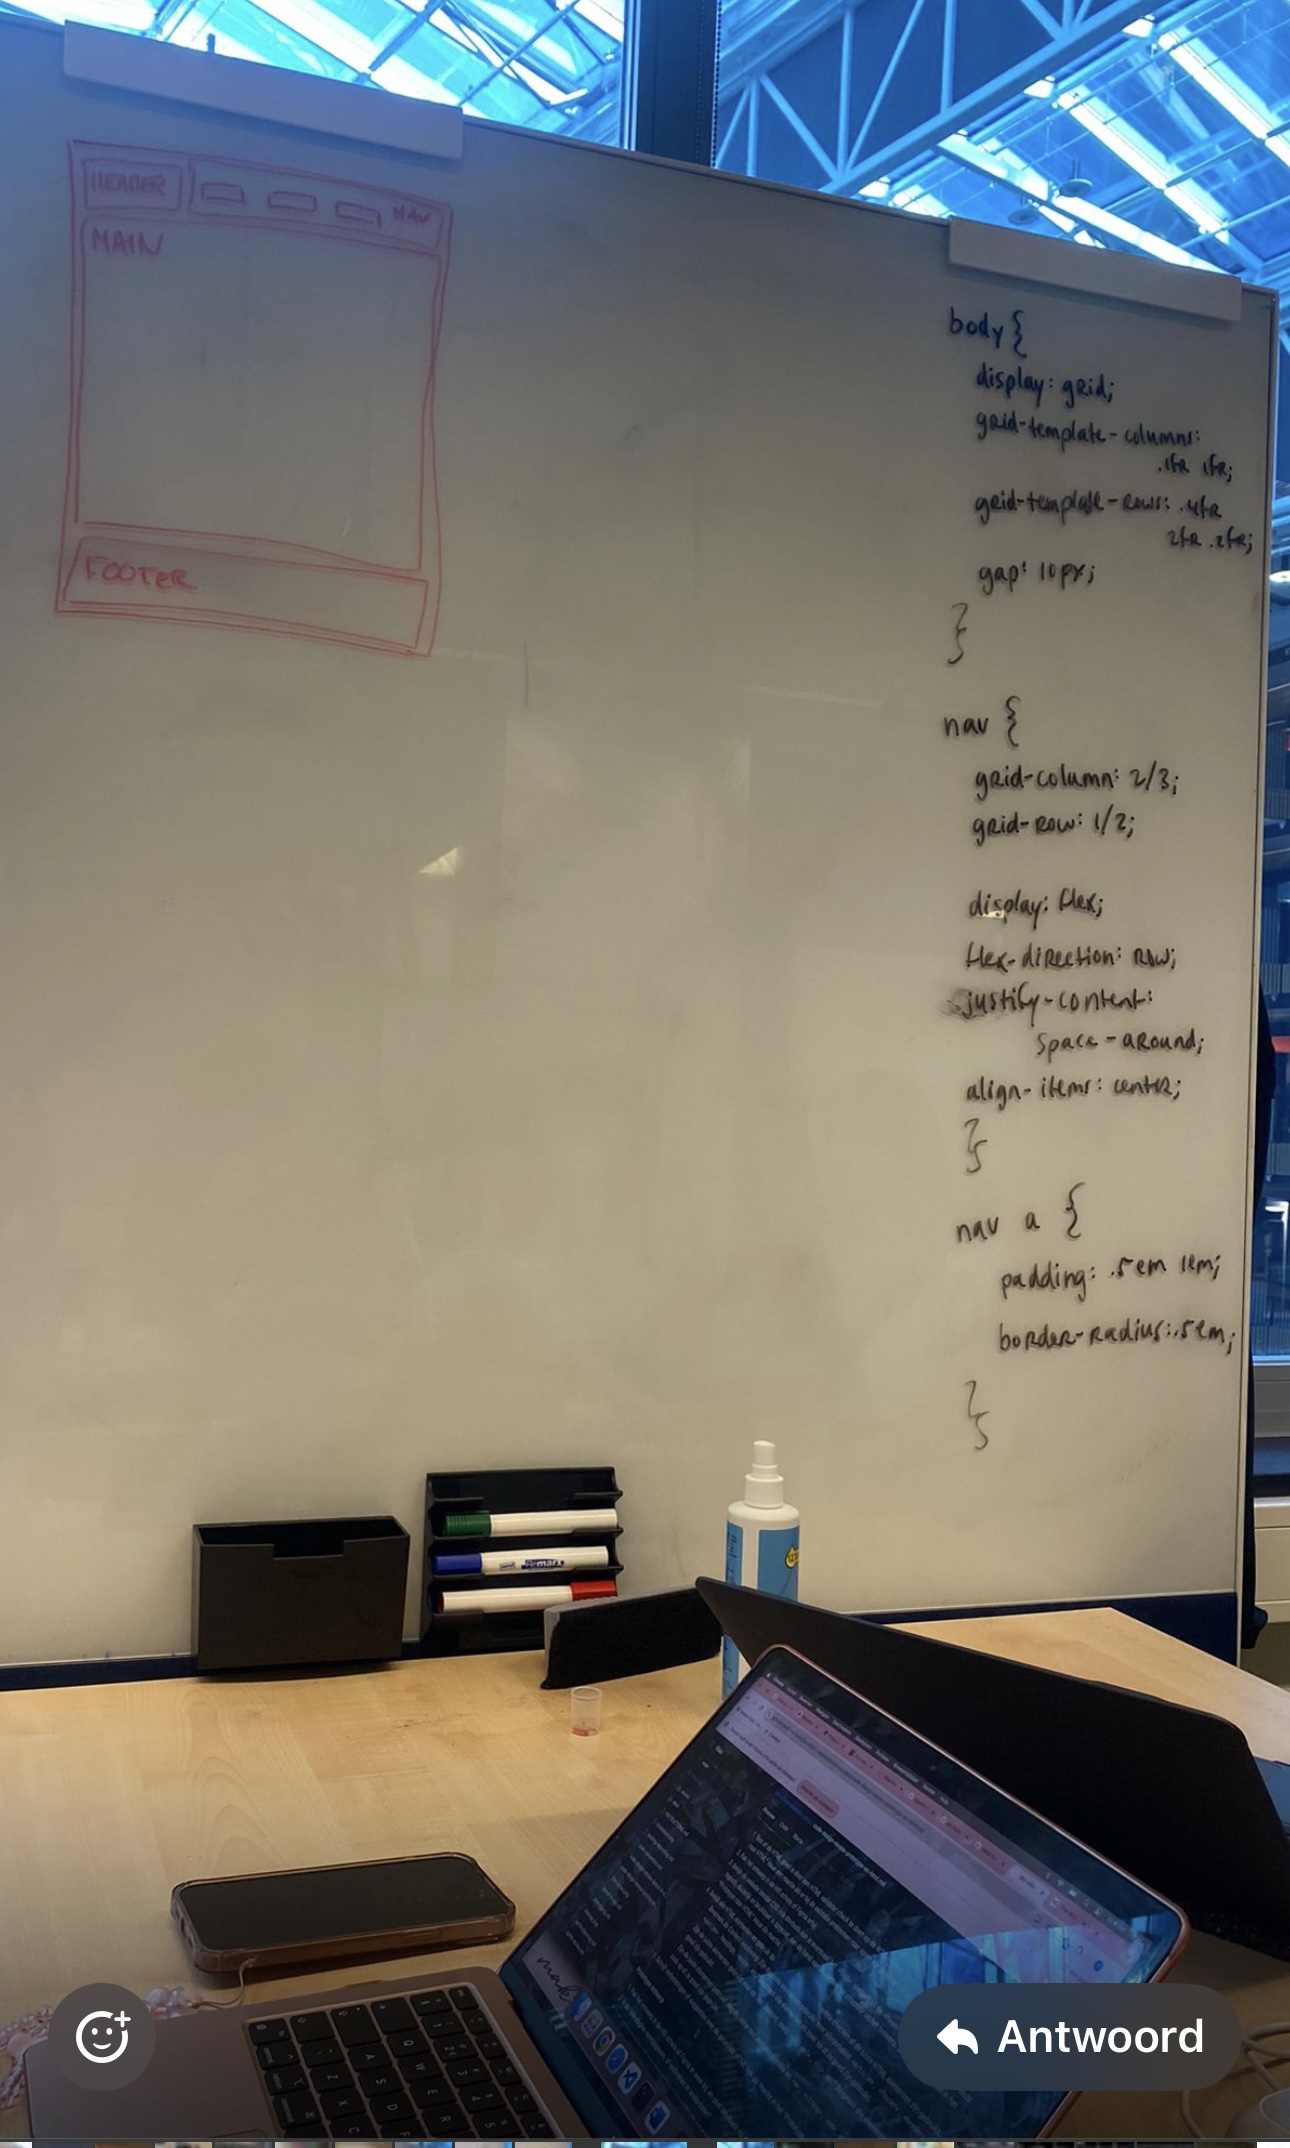 HEADER
NAV
MAIN
FOOTER
body {
display: grid;
grid-template-columns:
.1fr 1fr;
grid-template-rows: .4fr
2fr .2fr;
gap: 10px;
}
nav {
grid-column: 2/3;
grid-row: 1/2;
display: flex;
flex-direction: row;
justify-content:
space-around;
align-items: center;
}
nav a {
padding: .5em 1em;
border-radius: .5em;
}
Antwoord